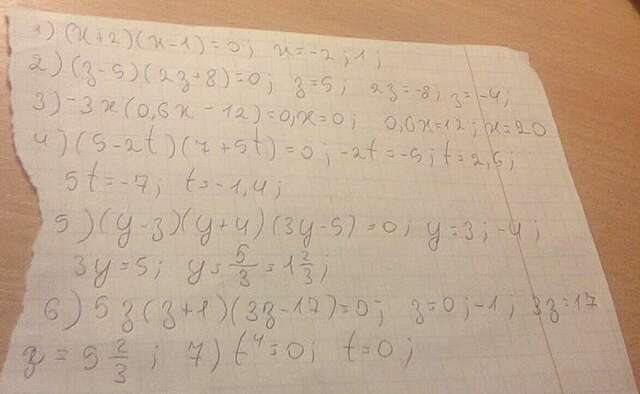 1) (x+2)(x-1)=0; x=-2; 1;
2) (z-5)(2z+8)=0; z=5; 2z=-8; z=-4;
3) -3x(0,6x-12)=0, x=0; 0,6x=12; x=20
4) (5-2t)(7+5t)=0; -2t=-5; t=2,5;
5t=-7; t=-1,4;
5) (y-3)(y+4)(3y-5)=0; y=3; -4;
3y=5; y=5/3=1 2/3;
6) 5z(z+1)(3z-17)=0; z=0; -1; 3z=17
z=5 2/3; 7) t⁴=0; t=0;